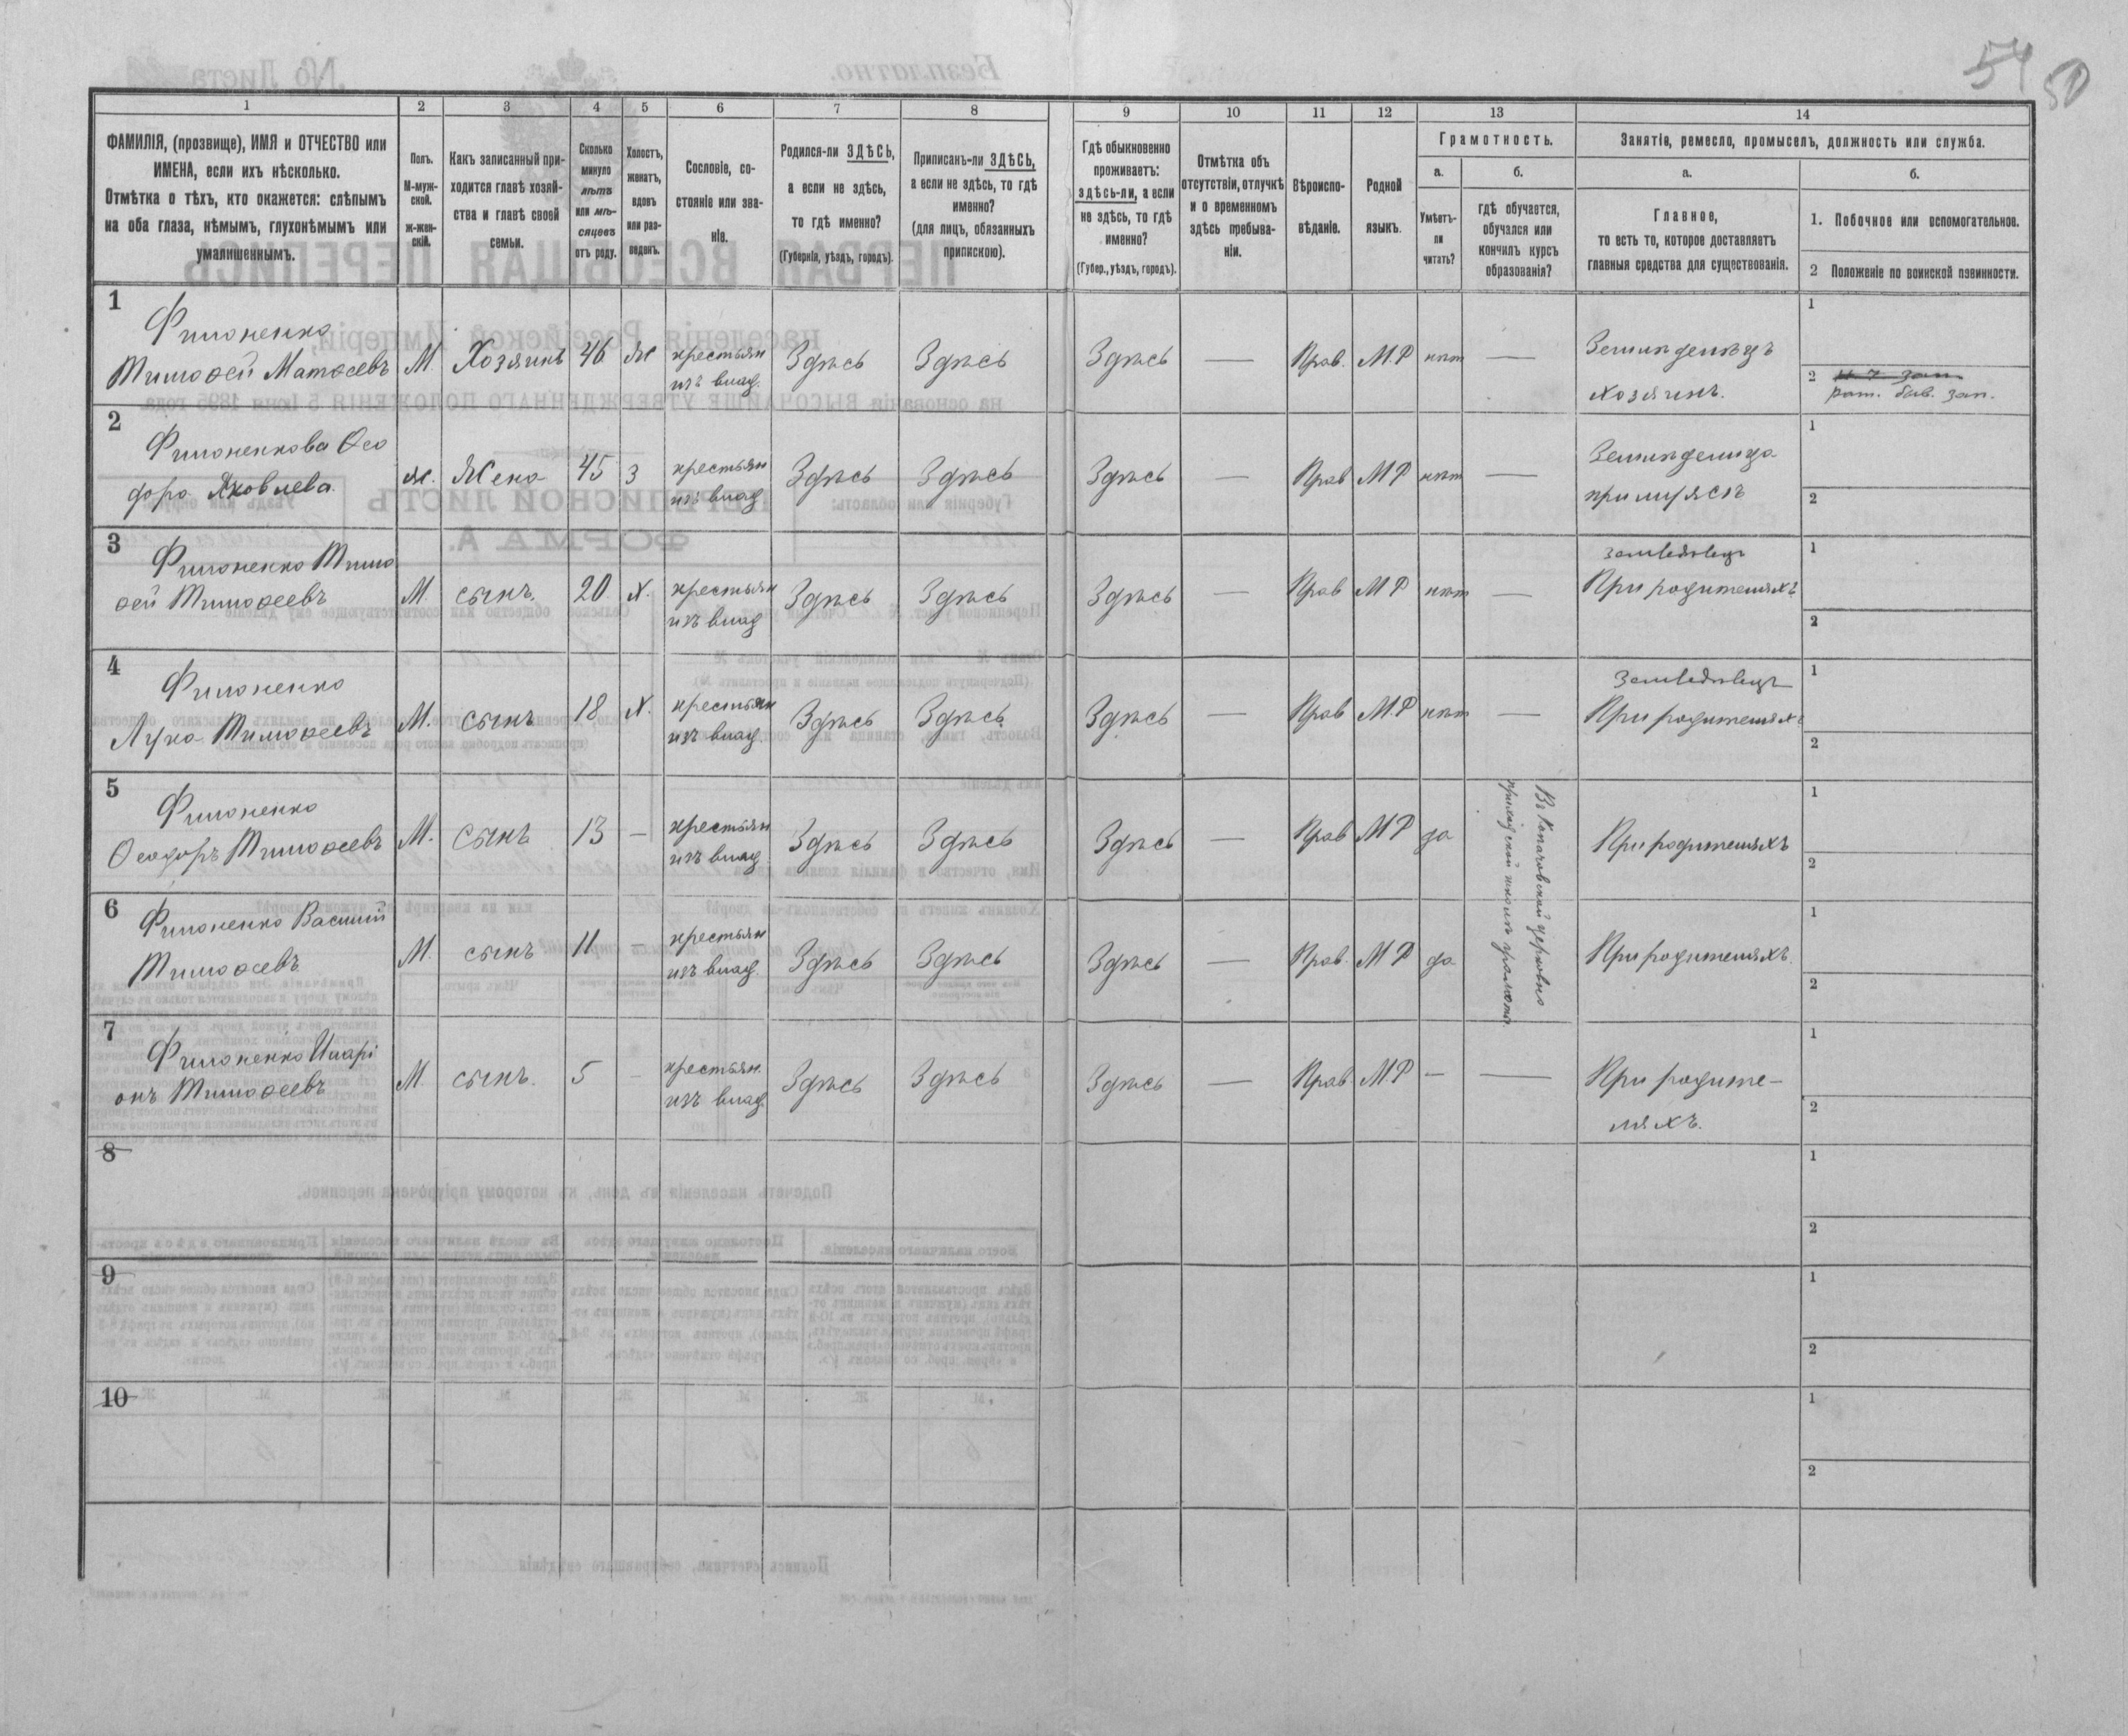 54 50
1 2 3 4 5 6 7 8 9 10 11 12 13 14
ФАМИЛІЯ, (прозвище), ИМЯ и ОТЧЕСТВО или
ИМЕНА, если ихъ нѣсколько.
Отмѣтка о тѣхъ, кто окажется: слѣпымъ
на оба глаза, нѣмымъ, глухонѣмымъ или
умалишеннымъ.
Полъ.
М-муж-
ской.
ж-жен-
скій.
Какъ записанный при-
ходится главѣ хозяй-
ства и главѣ своей
семьи.
Сколько
минуло
лѣтъ
или мѣ-
сяцевъ
отъ роду.
Холостъ,
женатъ,
вдовъ
или раз-
веденъ.
Сословіе, со-
стояніе или зва-
ніе.
Родился-ли ЗДѢСЬ,
а если не здѣсь,
то гдѣ именно?
(Губернія, уѣздъ, городъ).
Приписанъ-ли ЗДѢСЬ,
а если не здѣсь, то гдѣ
именно?
(для лицъ, обязанныхъ
припискою).
Гдѣ обыкновенно
проживаетъ:
здѣсь-ли, а если
не здѣсь, то гдѣ
именно?
(Губер., уѣздъ, городъ).
Отмѣтка объ
отсутствіи, отлучкѣ
и о временномъ
здѣсь пребыва-
ніи.
Вѣроиспо-
вѣданіе.
Родной
языкъ.
Грамотность.
а.
Умѣетъ-
ли
читать?
б.
гдѣ обучается,
обучался или
кончилъ курсъ
образованія?
Занятіе, ремесло, промыселъ, должность или служба.
а.
Главное,
то есть то, которое доставляетъ
главныя средства для существованія.
б.
1. Побочное или вспомогательное.
2 Положеніе по воинской повинности.
1
Филоненко
Тимоѳей Матѳеевъ М. Хозяинъ 46 ж крестьян Здѣсь Здѣсь Здѣсь — Прав. М.Р нѣт — Земледѣлецъ
изъ влад.
хозяинъ.
1
2
рат. быв. зап.
2
Филоненкова Ѳео
дора Яковлева ж. Жена 45 З крестьян Здѣсь Здѣсь Здѣсь — Прав МР нѣт — Земледѣлица
изъ влад
при мужѣ
1
2
3
Филоненко Тимо
ѳей Тимоѳеевъ М. сынъ. 20. х. крестьян Здѣсь Здѣсь Здѣсь — Прав МР нѣт — земледѣлецъ
изъ влад
При родителяхъ
1
2
4
Филоненко
Лука Тимоѳеевъ М. сынъ 18 х. крестьян Здѣсь Здѣсь Здѣсь — Прав М.Р нѣт — земледѣлецъ
изъ влад
При родителях
1
2
5
Филоненко
Ѳеодоръ Тимоѳеевъ М. сынъ 13 — крестьян Здѣсь Здѣсь Здѣсь — Прав МР да При родителяхъ
изъ влад
1
2
6
Филоненко Василій
Тимоѳеевъ М. сынъ 11 — крестьян Здѣсь Здѣсь Здѣсь — Прав. МР да При родителяхъ.
изъ влад.
1
2
церковно
приход ской школѣ грамоты.
7
Филоненко Иларі
онъ Тимоѳеевъ М. сынъ. 5 — крестьян. Здѣсь Здѣсь Здѣсь — Прав МР — — При родите-
изъ влад.
ляхъ.
1
2
8
1
2
9
1
2
10
1
2